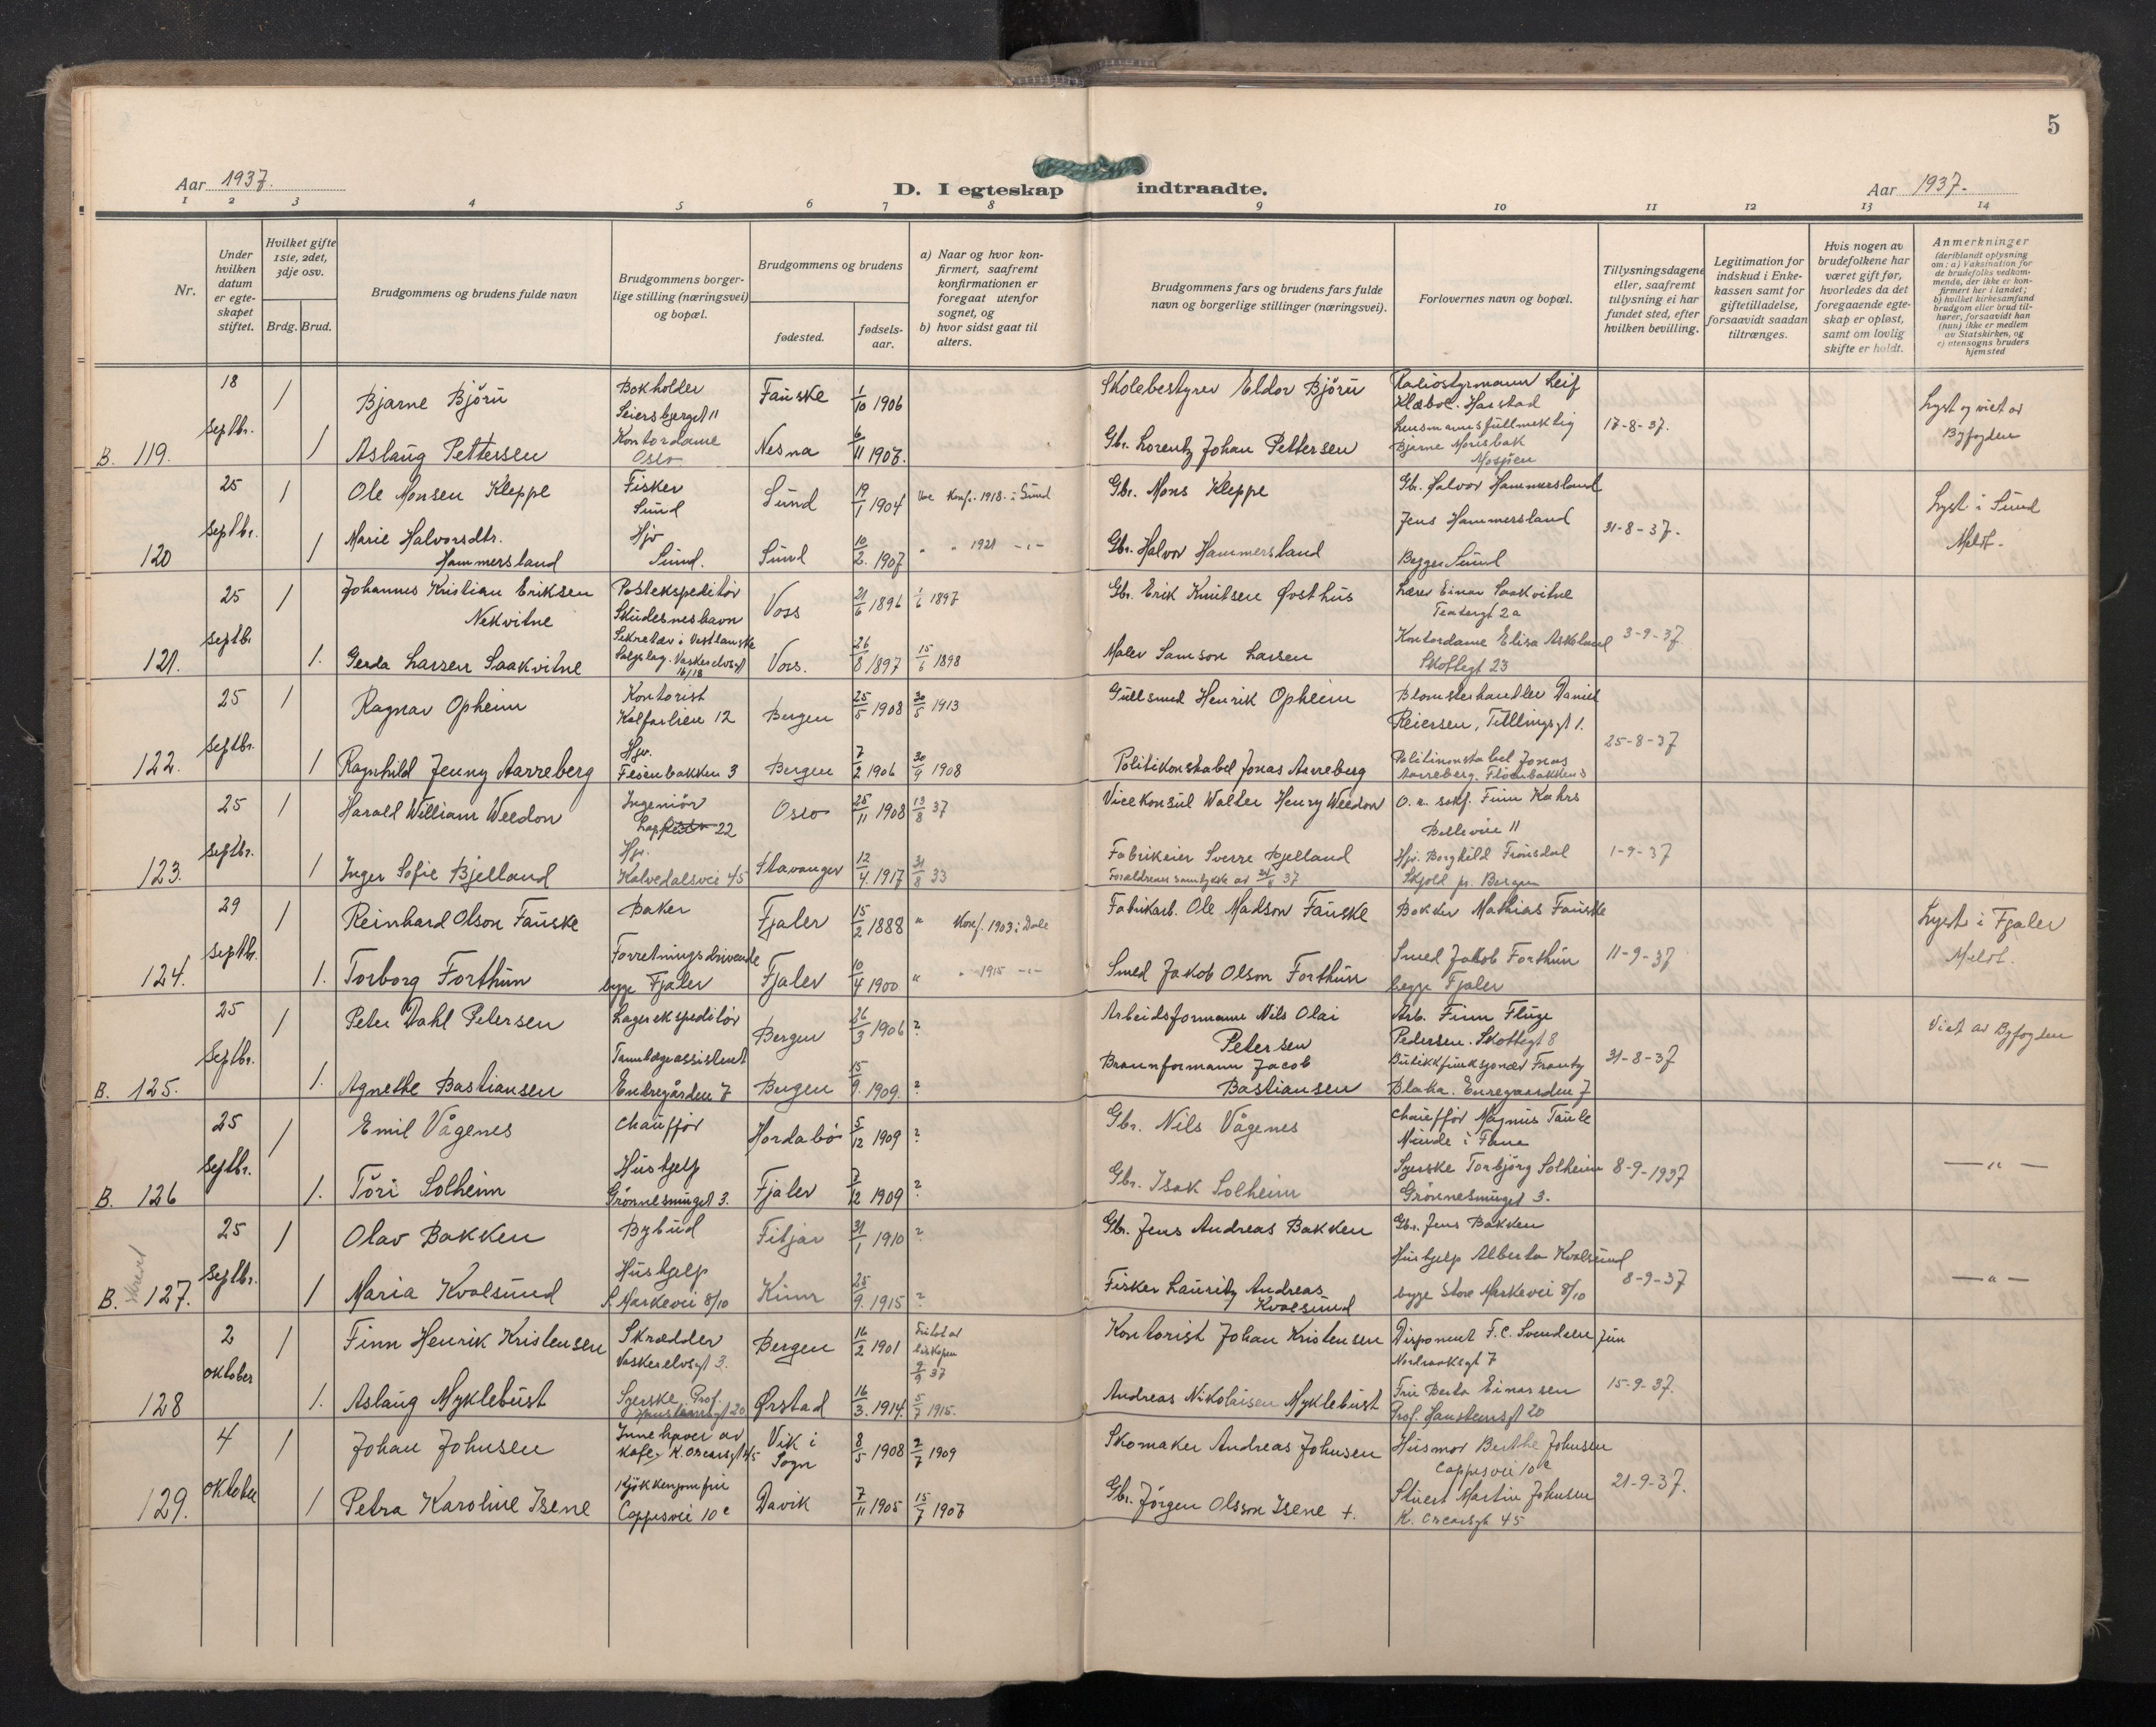 5
Aar 1937.
D. I egteskap indtraadte.
Aar 1937.
1 2 3 4 5 6 7 8 9 10 11 12 13 14
Nr.
Under hvilken datum er egteskapet stiftet.
Hvilket gifte 1ste, 2det, 3dje osv.
Brdg. Brud.
Brudgommens og brudens fulde navn
Brudgommens borgerlige stilling (næringsvei) og bopæl.
Brudgommens og brudens
fødested.
fødselsaar.
a) Naar og hvor konfirmert, saafremt konfirmationen er foregaat utenfor sognet, og
b) hvor sidst gaat til alters.
Brudgommens fars og brudens fars fulde navn og borgerlige stillinger (næringsvei).
Forlovernes navn og bopæl.
Tillysningsdagene eller, saafremt tillysning ei har fundet sted, efter hvilken bevilling.
Legitimation for indskud i Enkekassen samt for giftetilladelse, forsaavidt saadan tiltrænges.
Hvis nogen av brudefolkene har været gift før, hvorledes da det foregaaende egteskap er opløst, samt om lovlig skifte er holdt.
Anmerkninger (deriblandt oplysning om: a) Vaksination for de brudefolks vedkommende, der ikke er konfirmert her i landet; b) hvilket kirkesamfund brudgom eller brud tilhører, forsaavidt han (hun) ikke er medlem av Statskirken, og c) utensogns bruders hjemsted
B. 119. 18 Septbr.
1 Bjarne Björu Bokholder Seiersbjerget 11 Fauske 1/10 1906 Skolebestyrer Eldor Björu Radiostyrmann Leif Klæboe. Harstad
1 Aslaug Pettersen Kontordame Oslo Nesna 6/11 1907. Gbr. Lorentz Johan Pettersen Lensmannsfullmektig Bjarne Mosjöen
17-8-37. Lyst og viet av Byfogden
120 25 Septbr.
1 Ole Monsen Kleppe Fisker Sund Sund 19/1 1904 Konf. 1918. i Sund Gbr. Mons Kleppe Gbr. Halvor Hammersland
1 Marie Halvorsdtr. Hammersland Hjv Sund. Sund 10/2. 1907 " " 1921 -"- Gbr. Halvor Hammersland Jens Hammersland Begge Sund
31-8-37. Lyst i Sund Meldt.
121. 25 Septbr
1 Johannes Kristian Eriksen Nekvitne Postekspeditör Skudesneshavn Voss 21/6 1896 1/6 1897 Gbr. Erik Knutsen Øvsthus Lærer Einar Saakvitne Teatergt 2a
1. Gerda Larsen Saakvitne Sekretær i Vestlanske Salgslag. Vaskerelvsgt 16/18 Voss. 26/8 1897 15/6 1898 Maler Samson Larsen Kontordame Elisa Askeland Skottegt 23
3-9-37.
122. 25 Septbr.
1 Ragnar Opheim Kontorist Kalfarlien 12 Bergen 25/5 1908 30/5 1913 Gullsmed Henrik Opheim Blomsterhandler Daniel Reiersen, Tullingsgt 1.
1 Ragnhild Jenny Aarreberg Hjv. Flöenbakken 3 Bergen 7/2 1906 30/9 1908 Politikonstabel Jonas Aarreberg Politikonstabel Jonas Aarreberg. Flöenbakken 3
25-8-37
123. 25 Septbr.
1 Harald William Weedon Ingeniör 22 Oslo 25/11 1908 13/8 37 Vicekonsul Walter Henry Weedon O. r. sakf. Finn Kahrs Bellevue 11
1 Inger Sofie Bjelland Hjv. Kalvedalsvei 45 Stavanger 12/4. 1917 31/8 33 Fabrikeier Sverre Bjelland Foreldrenes samtykke av 31/8 37 Hjv. Borghild Fronsdal Skjold pr. Bergen
1-9-37
124. 29 Septbr.
1 Reinhard Olson Fauske Baker Fjaler 15/2 1888 " Konf. 1903 i Dale Fabrikarb. Ole Madson Fauske Bakker Mathias Fauske
1. Torborg Forthun Forretningsdrivende begge Fjaler Fjaler 10/4 1900 " " 1915 -"- Smed Jakob Olson Forthun Smed Jakob Forthun begge Fjaler
11-9-37 Lyst i Fjaler Meldt.
B. 125. 25 Septbr.
1 Peter Dahl Petersen Lagerekspeditör Bergen 26/3 1906 ? Arbeidsformann Nils Olai Petersen Arb. Finn Fluge Pedersen. Skottegt 8
1. Agnethe Bastiansen Tannlægeassistent Endregården 7 Bergen 15/9. 1909. ? Brannformann Jacob Bastiansen Butikkfunksjonær Frantz Blaka. Enregaarden 7
31-8-37 Viet av Byfogden
B. 126 25 Septbr.
1 Emil Vågenes Chauffjör Hordabö 5/12 1909 ? Gbr. Nils Vågenes Chauffjör Magnus Taule Minde i Fana
1. Töri Solheim Hushjelp Grönnesmuget 3. Fjaler 7/12 1909 ? Gbr. Isak Solheim Syerske Torbjörg Solheim Grönnesmuget 3.
8-9-1937 — " —
B. 127. 25 Septbr.
1 Olav Bakken Bybud Fitjar 31/1 1910 ? Gbr. Jens Andreas Bakken Gbr. Jens Bakken
1 Maria Kvalsund Hushjelp S. Markevei 8/10 Kinn 25/9. 1915 ? Fisker Lauritz Andreas Kvalsund Hushjelp Alberta Kvalsund begge Store Markevei 8/10
8-9-37 — " —
128 2 oktober
1 Finn Henrik Kristensen Skrædder Vaskerelvsgt 3. Bergen 16/2 1901 Fritatt av biskopen 9/9 37 Kontorist Johan Kristensen Disponent F.C. Svendsen jun Nordraaksgt 7
1. Aslaug Myklebust Syerske. Prof. Hansteensgt 20 Ørstad 16/3. 1914. 5/7 1915. Andreas Nikolaisen Myklebust Fru Berta Einarsen Prof. Hansteensgt 20
15-9-37.
129. 4 oktober
1 Johan Johnsen Innehaver av kafe. K. Oscarsgt 45 Vik i Sogn 8/5 1908 2/7 1909 Skomaker Andreas Johnsen Husmor Berthe Johnsen Cappesvei 10c
1 Petra Karoline Isene Kjökkenjomfru Cappesvei 10c Davik 7/11 1905 15/7 1907 Gbr. Jörgen Olsson Isene +. Stuert Martin Johnsen K. Oscarsgt 45
21-9-37.